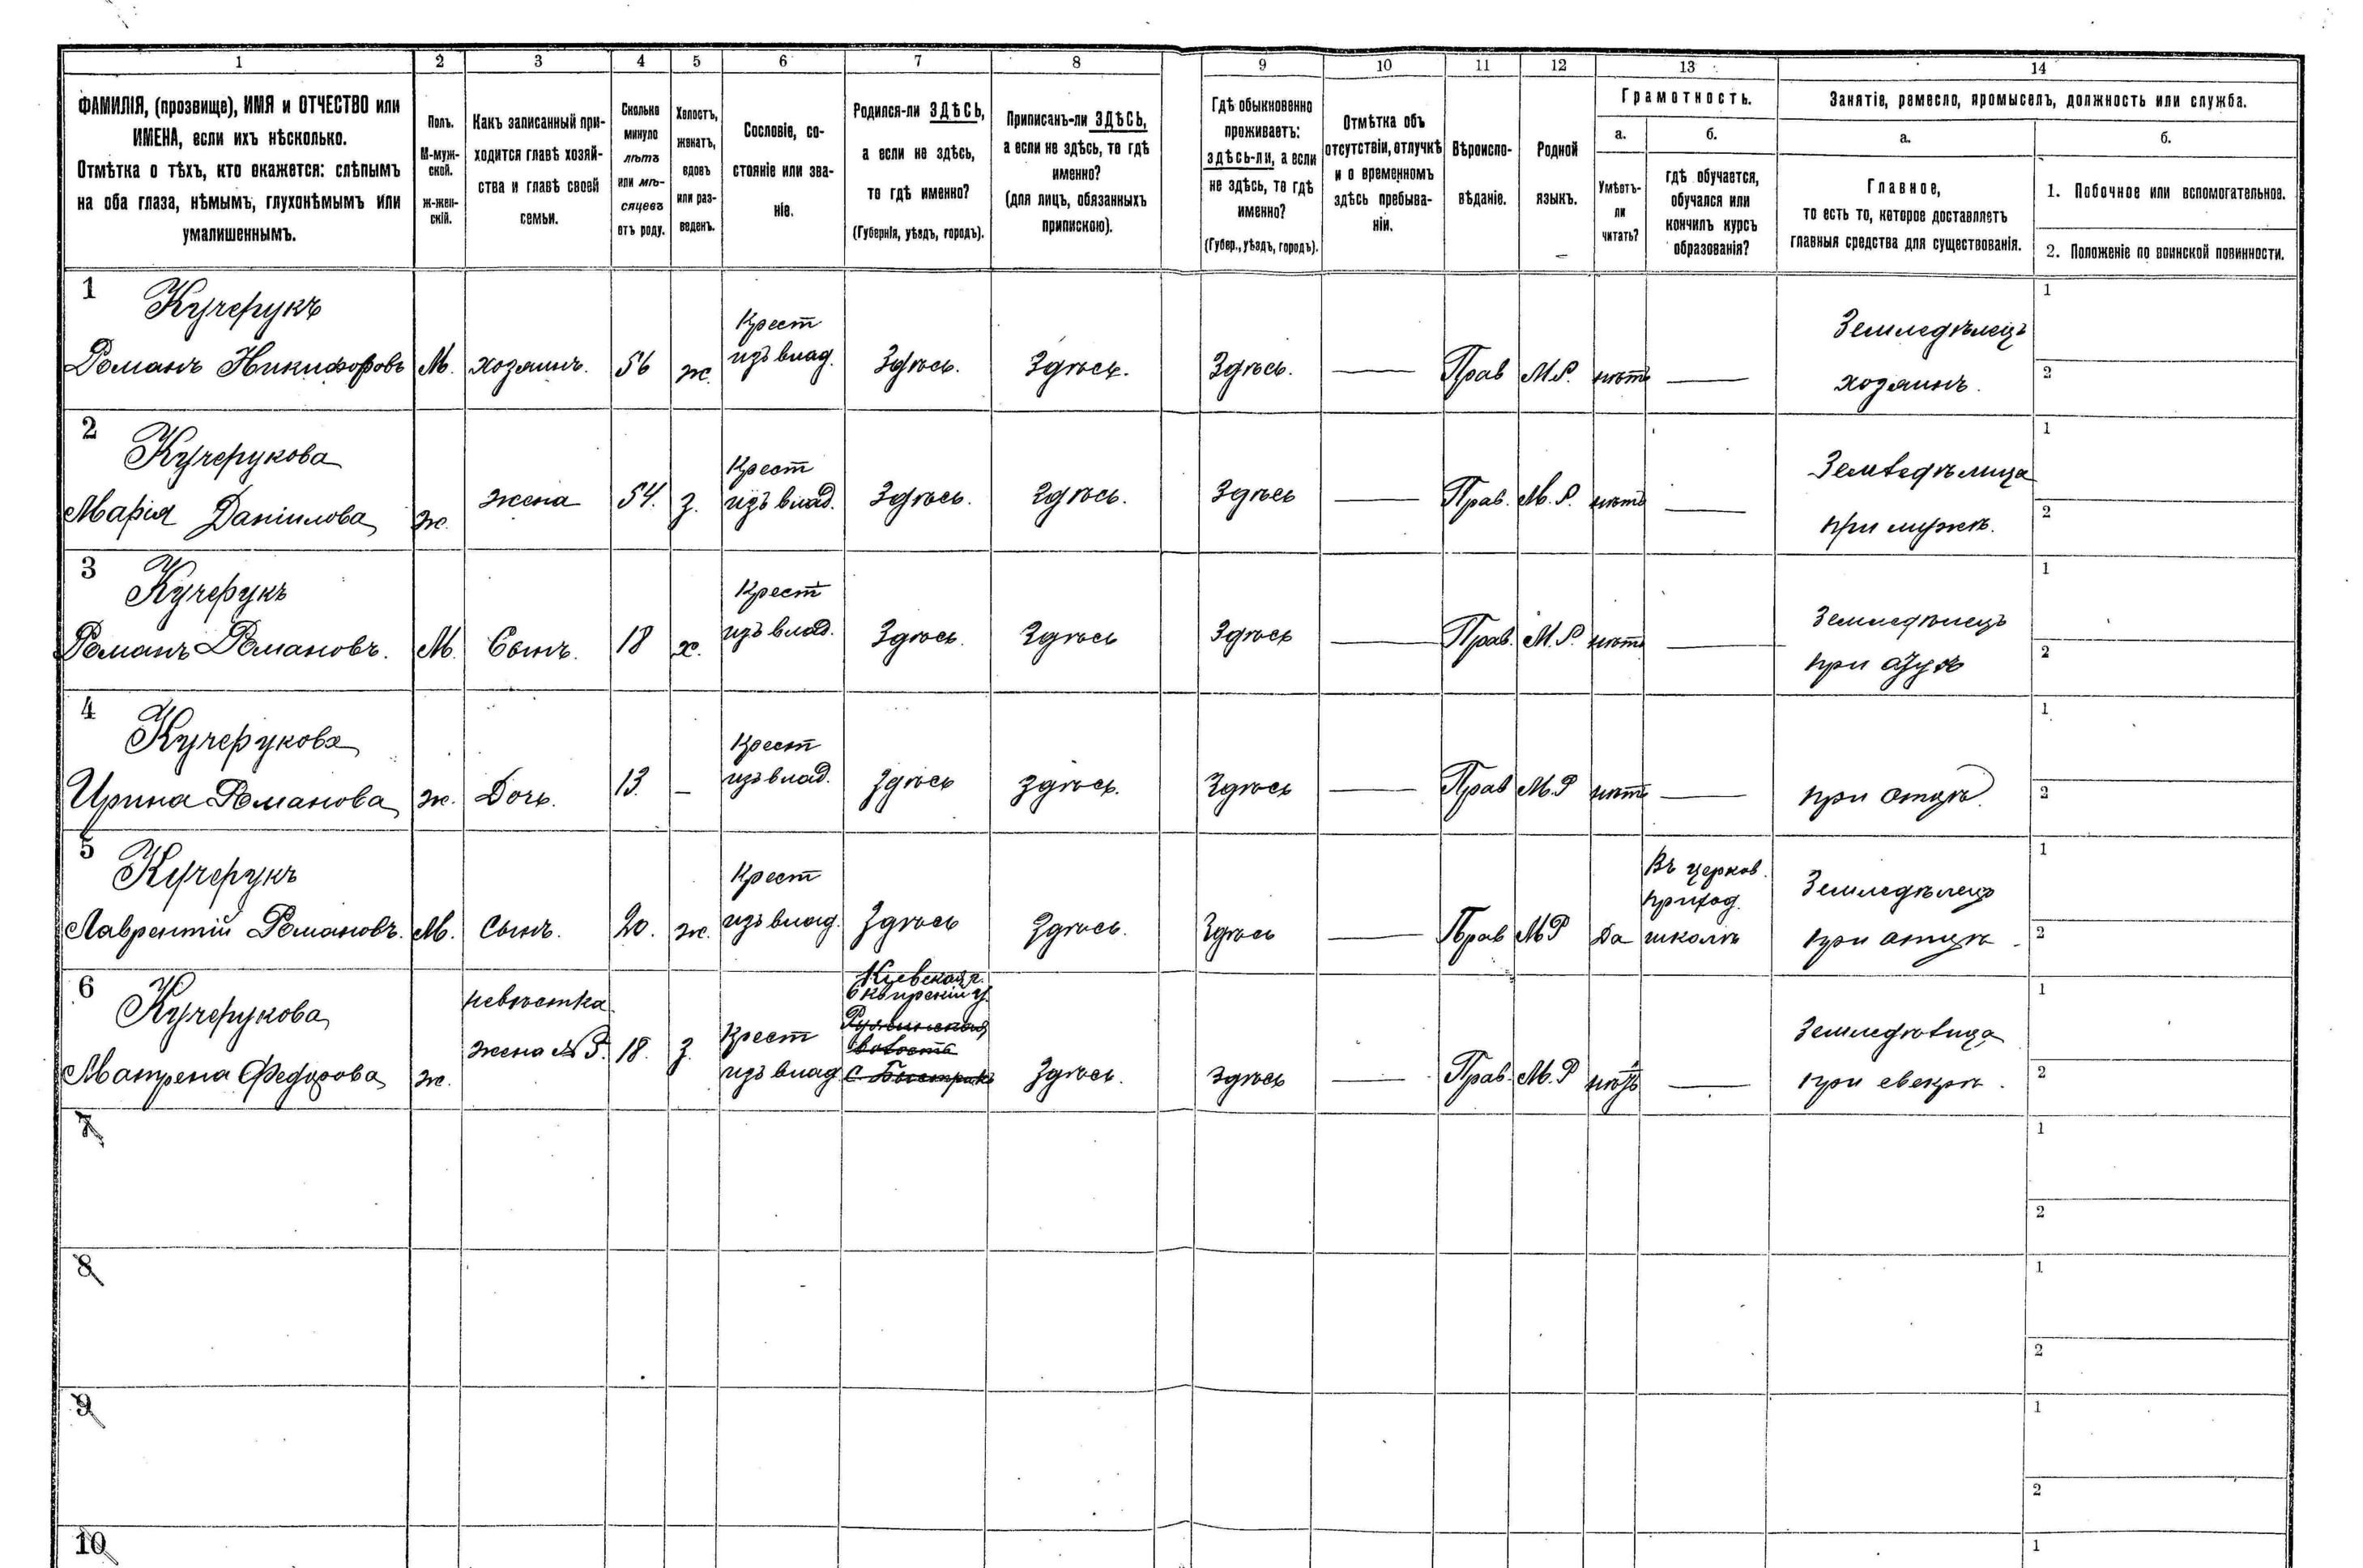 1 2 3 4 5 6 7 8 9 10 11 12 13 14
ФАМИЛІЯ, (прозвище), ИМЯ и ОТЧЕСТВО или
ИМЕНА, если ихъ нѣсколько.
Отмѣтка о тѣхъ, кто окажется: слѣпымъ
на оба глаза, нѣмымъ, глухонѣмымъ или
умалишеннымъ.
Полъ.
М-муж-
ской.
ж-жен-
скій.
Какъ записанный при-
ходится главѣ хозяй-
ства и главѣ своей
семьи.
Сколько
минуло
лѣтъ
или мѣ-
сяцевъ
отъ роду.
Холостъ,
женатъ,
вдовъ
или раз-
веденъ.
Сословіе, со-
стояніе или зва-
ніе.
Родился-ли ЗДѢСЬ,
а если не здѣсь,
то гдѣ именно?
(Губернія, уѣздъ, городъ).
Приписанъ-ли ЗДѢСЬ,
а если не здѣсь, то гдѣ
именно?
(для лицъ, обязанныхъ
припискою).
Гдѣ обыкновенно
проживаетъ:
здѣсь-ли, а если
не здѣсь, то гдѣ
именно?
(Губер., уѣздъ, городъ).
Отмѣтка объ
отсутствіи, отлучкѣ
и о временномъ
здѣсь пребыва-
ніи.
Вѣроиспо-
вѣданіе.
Родной
языкъ.
Грамотность.
а.
Умѣетъ-
ли
читать?
б.
гдѣ обучается,
обучался или
кончилъ курсъ
образованія?
Занятіе, ремесло, промыселъ, должность или служба.
а.
Главное,
то есть то, которое доставляетъ
главныя средства для существованія.
б.
1. Побочное или вспомогательное.
2. Положеніе по воинской повинности.
1
Кучерукъ
Романъ Никифоровъ
М.
хозяинъ.
56
ж.
Крест
изъ влад.
Здѣсь.
Здѣсь.
Здѣсь.
—
Прав
М.Р.
нѣтъ
—
Земледѣлецъ
хозяинъ.
1
2
2
Кучерукова
Марія Даніилова
ж.
жена
54.
з.
Крест
изъ влад.
Здѣсь.
Здѣсь.
Здѣсь
—
Прав.
М.Р.
нѣтъ
—
Земледѣлица
при мужѣ.
1
2
3
Кучерукъ
Романъ Романовъ.
М.
Сынъ.
18
х.
Крест
изъ влад.
Здѣсь.
Здѣсь
Здѣсь
—
Прав.
М.Р.
нѣтъ
—
Земледѣлецъ
при отцѣ
1
2
4
Кучерукова
Ирина Романова
ж.
Дочь.
13.
—
Крест
изъ влад.
Здѣсь
Здѣсь.
Здѣсь
—
Прав
М.Р
нѣтъ
—
при отцѣ.
1
2
5
Кучерукъ
Лаврентій Романовъ.
М.
Сынъ.
20.
ж.
Крест
изъ влад.
Здѣсь
Здѣсь.
Здѣсь
—
Прав
МР
Да
Въ церков.
приход.
школѣ
Земледѣлецъ
при отцѣ.
1
2
6
Кучерукова
Матрена Федорова
ж.
невѣстка
жена №5.
18.
з.
Крест
изъ влад
Кіевская г.
Сквирскій у.
волость
Здѣсь.
Здѣсь
—
Прав.
М.Р
нѣтъ
—
Земледѣлица
при свекрѣ.
1
2
7
1
2
8
1
2
9
1
2
10
1